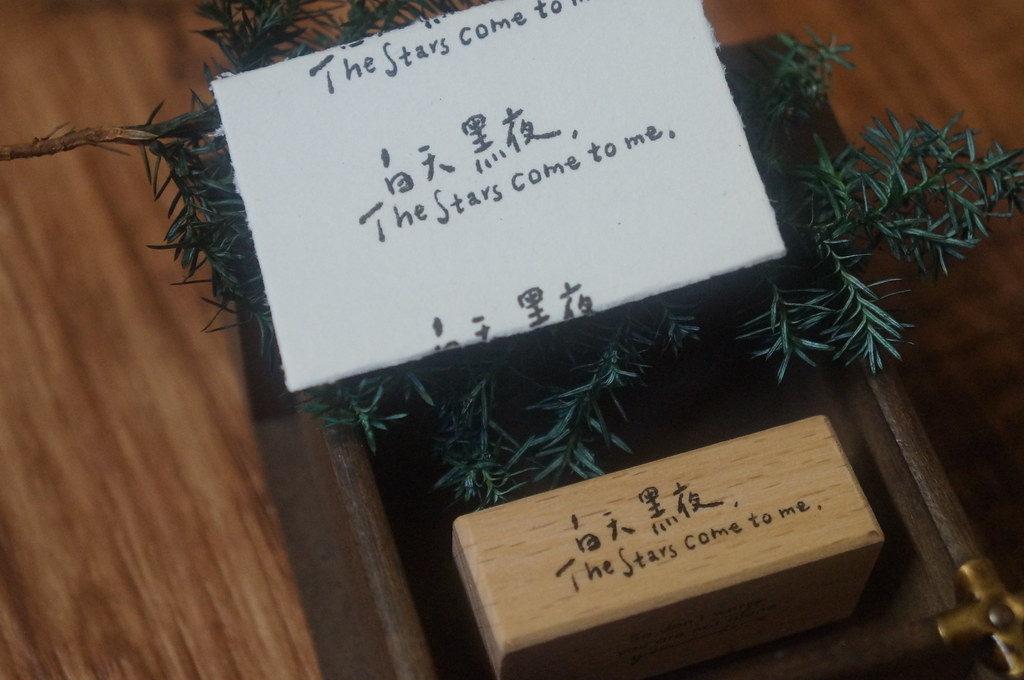 The Stars come to m
白天黑夜,
The Stars come to me.
白天黑夜
白天黑夜,
The Stars come to me.